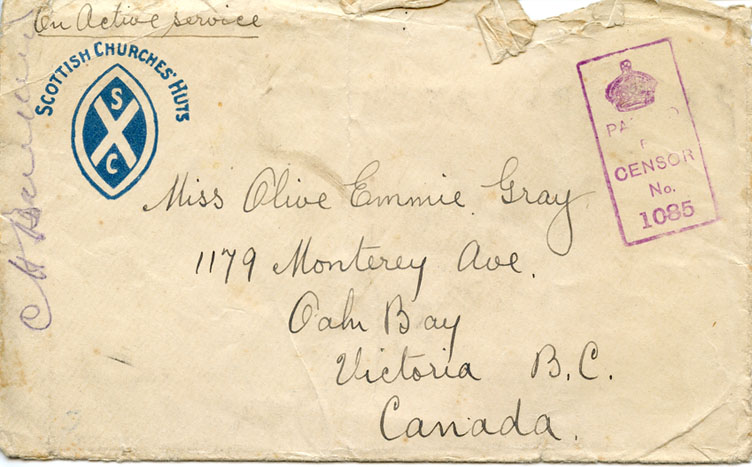 On Active Service
SCOTTISH CHURCHES' HUTS
S
C
PA
CENSOR
No.
1085
Miss Olive Emmie Gray
1179 Monterey Ave.
Oak Bay
Victoria B.C.
Canada.
C H